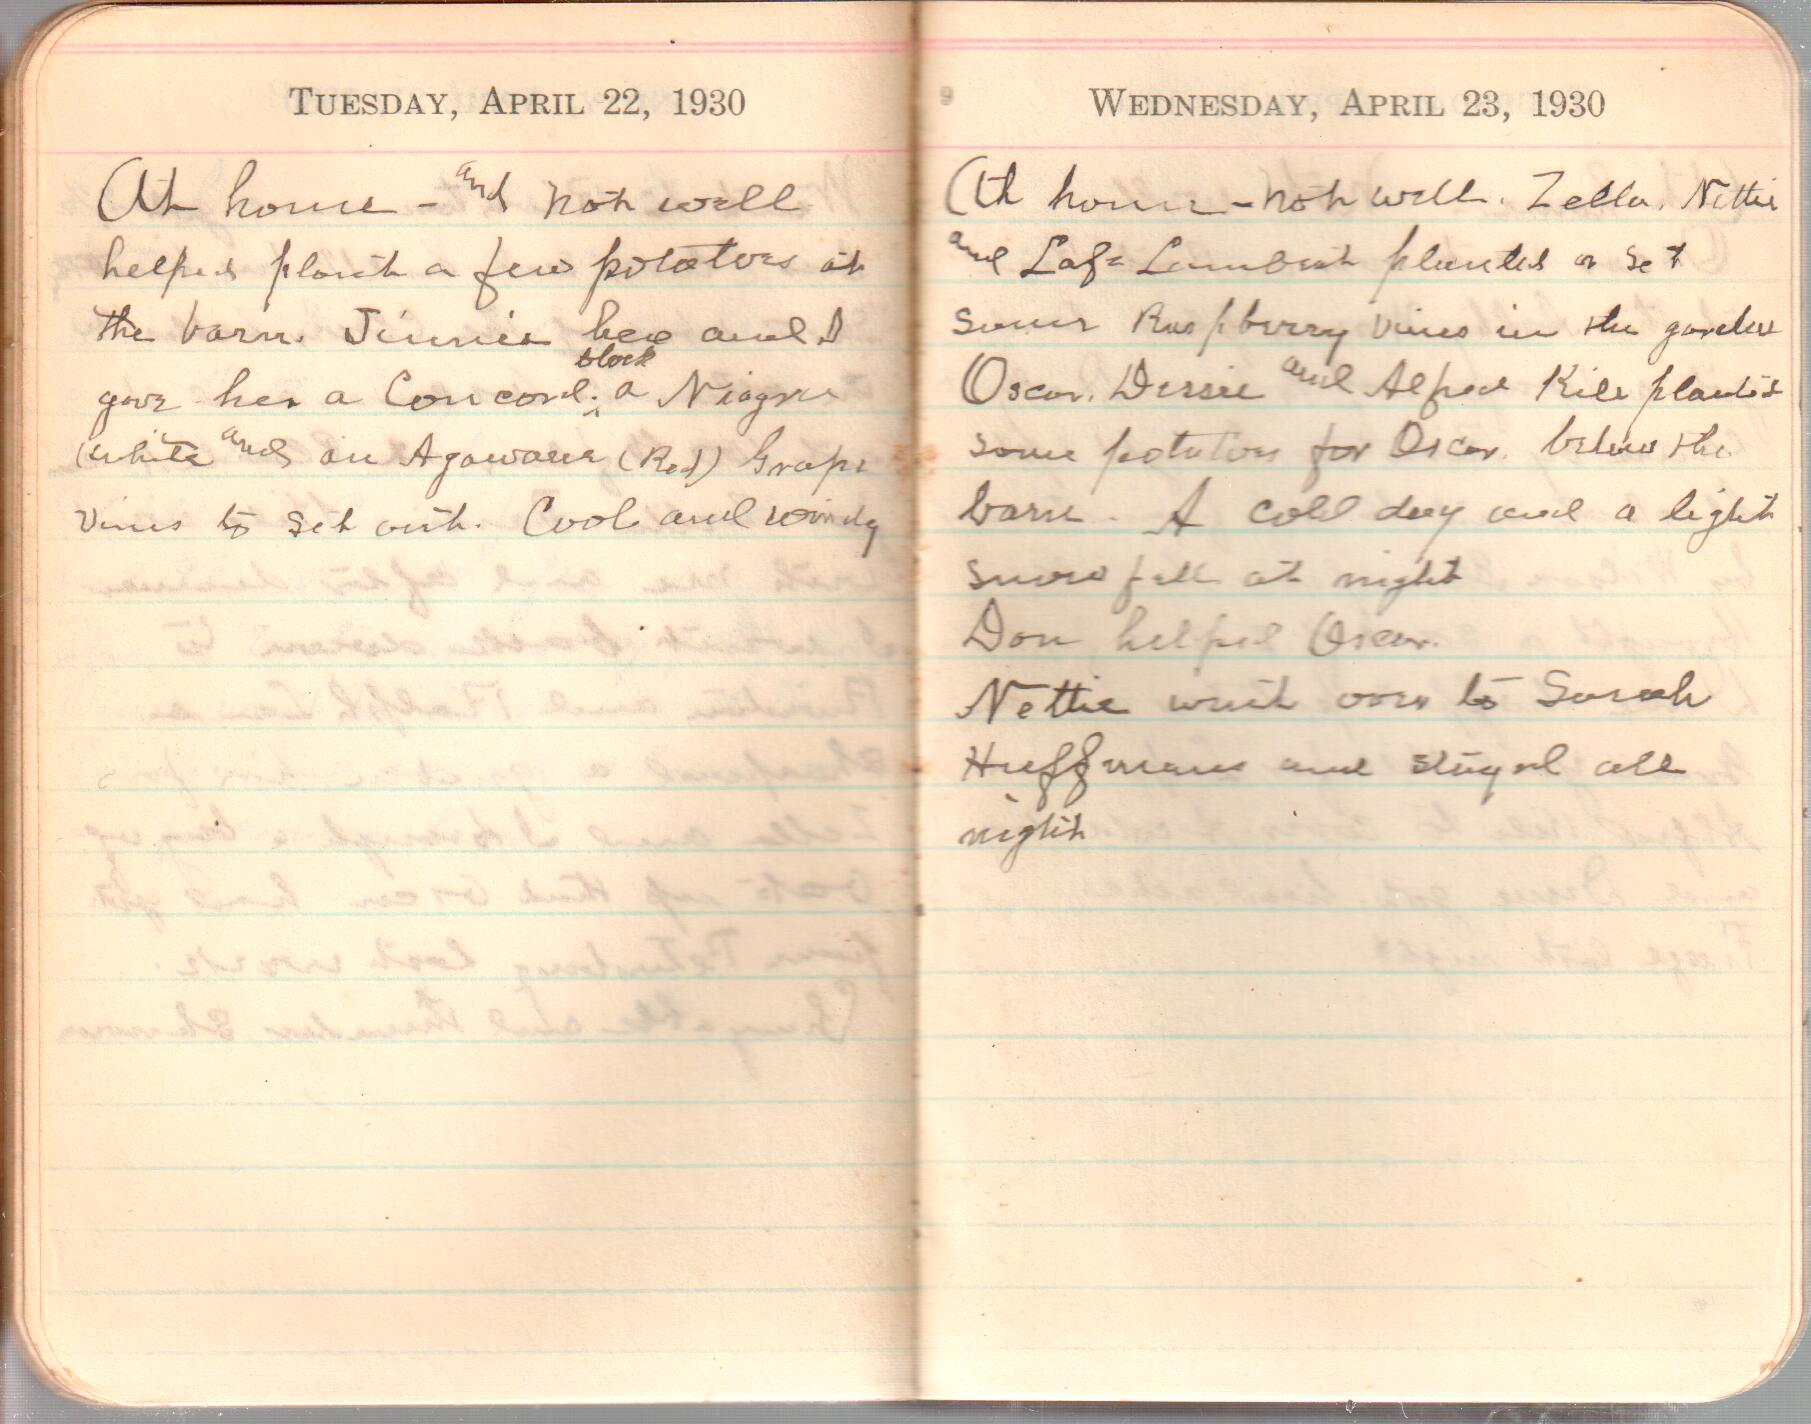 TUESDAY, APRIL 22, 1930
At home - and not well
helped plant a few potatoes at
the barn. Jinnie here and I
gave her a Concord. black a Niagra
(white and an Agawam (Red) Grape
vines to set out. Cool and windy
WEDNESDAY, APRIL 23, 1930
At home - not well. Zella, Nettie
and Lafe Lambert planted or set
some Raspberry vines in the garden
Oscar, Dessie and Alfred Kile planted
some potatoes for Oscar. below the
barn. A cold day and a light
snow fell at night
Don helped Oscar.
Nettie went over to Sarah
Huffmans and stayed all
night